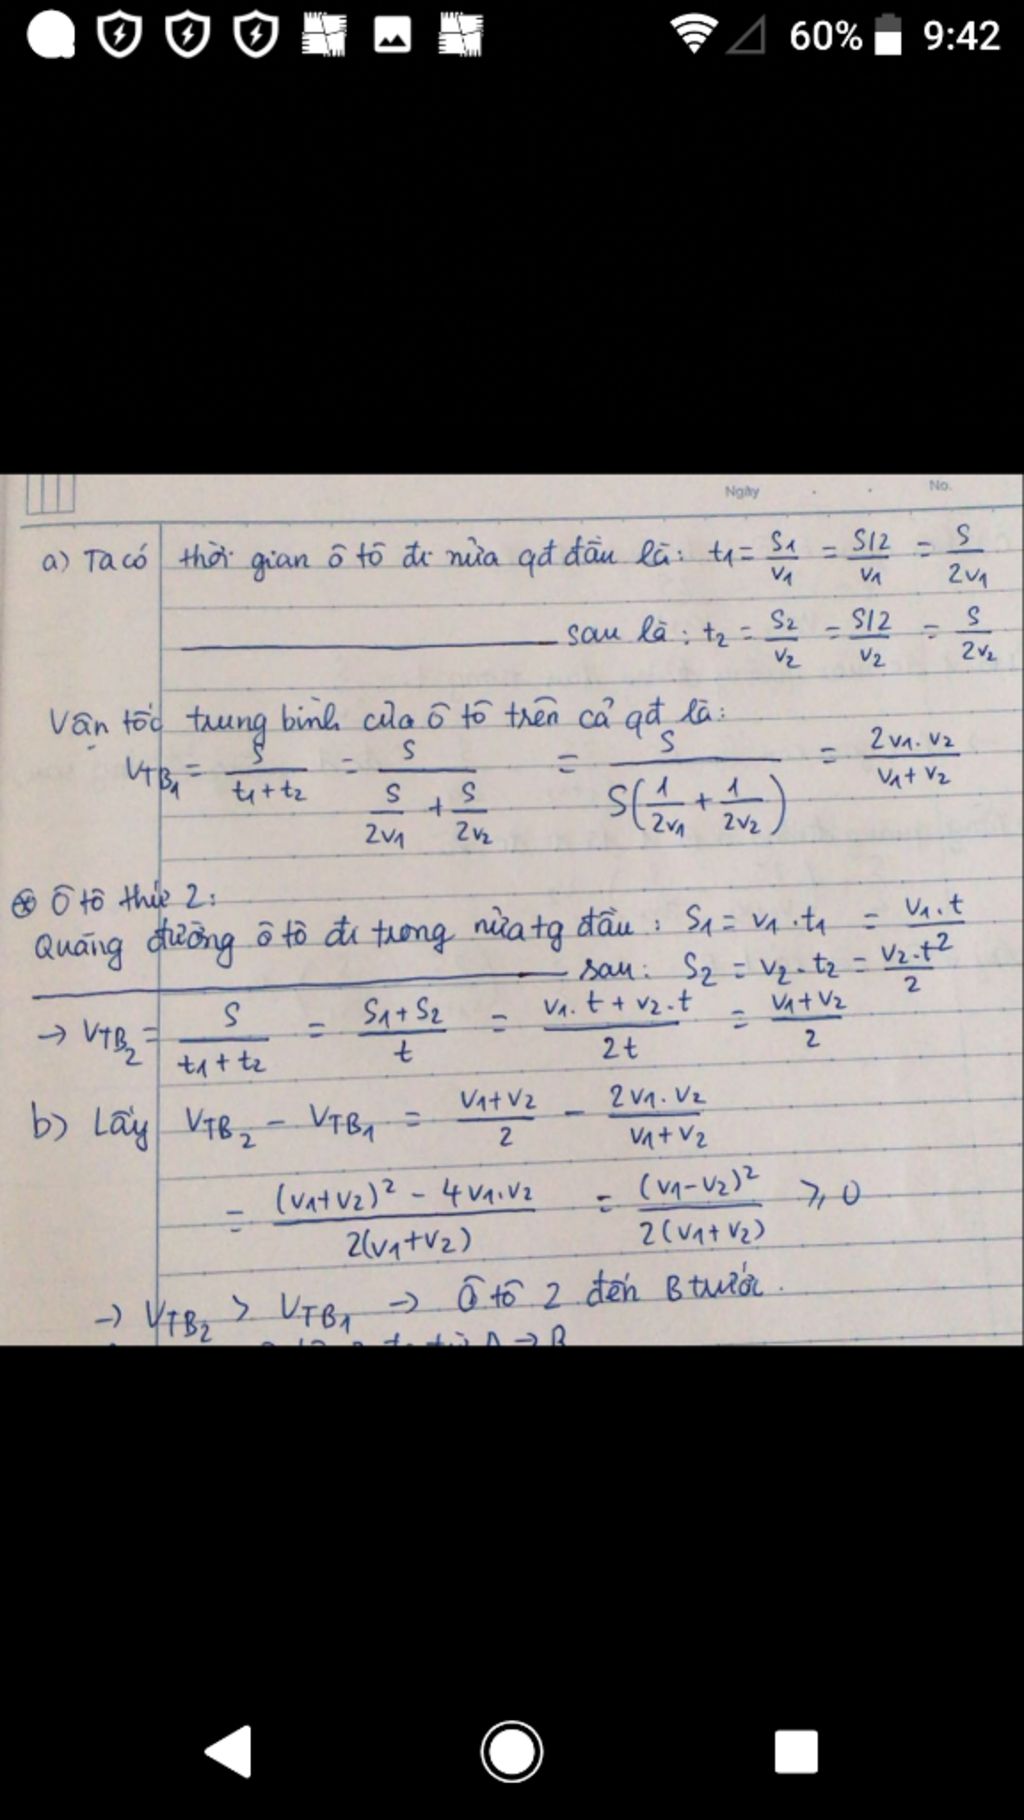 60% 9:42
Ngày . . No.
a) Ta có thời gian ô tô đi nửa qđ đầu là: t₁ = S₁/v₁ = S/2/v₁ = S/2v₁
——— sau là: t₂ = S₂/v₂ = S/2/v₂ = S/2v₂
Vận tốc trung bình của ô tô trên cả qđ là:
VTB₁ = S/(t₁+t₂) = S/(S/2v₁ + S/2v₂) = S/(S(1/2v₁ + 1/2v₂)) = 2v₁.v₂/(v₁+v₂)
⊛ Ô tô thứ 2:
Quãng đường ô tô đi trong nửa tg đầu: S₁ = v₁.t₁ = v₁.t/2
——— sau: S₂ = v₂.t₂ = v₂.t/2
→ VTB₂ = S/(t₁+t₂) = (S₁+S₂)/t = (v₁.t+v₂.t)/2t = (v₁+v₂)/2
b) Lấy VTB₂ - VTB₁ = (v₁+v₂)/2 - 2v₁.v₂/(v₁+v₂)
= ((v₁+v₂)² - 4v₁.v₂)/2(v₁+v₂) = (v₁-v₂)²/2(v₁+v₂) ⩾ 0
→ VTB₂ > VTB₁ → Ô tô 2 đến B trước.
A → B